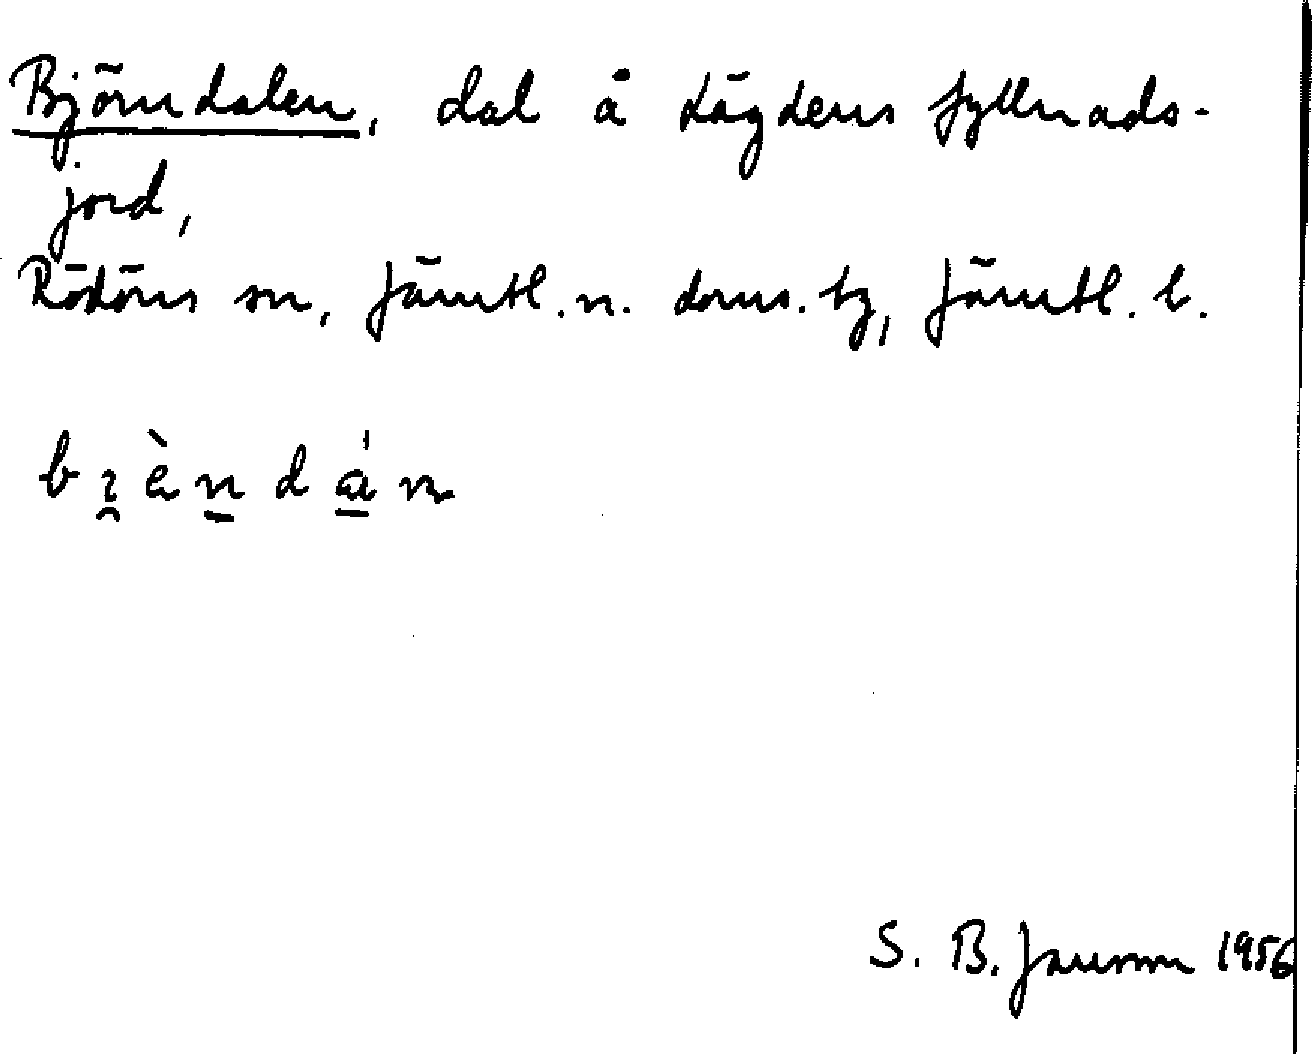 Björndalen, dal å Lägdens fyllnads-
jord,
Rödöns sn, Jämtl. n. doms. tg, Jämtl. l.
S. B. Jansson 1956